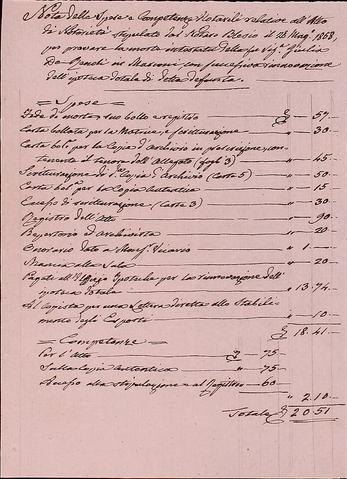 Nota delle Spese e Competenze Notarili relative all'Atto
di Notorietà stipulato dal Notaro Blasio il 26 Mag. 1858,
per provare la morte intestata della fu Sig.ª Giulia
De in , con successiva rinnovazione
dell'ipoteca Dotale di detta defunta.
= Spese =
Fede di morte, suo bollo e registro " 57-
Carta bollata per la Matrice, e scritturazione " 30-
Carta bol. per la Copia d'Archivio in pelorizione, con-
tenente il tenore dell'Allegato (fogli 3) " 45-
Scritturazione di d.ª Copia d'Archivio (Carte 5) " 50-
Carta bol.ª per la Copia Autentica " 15
Compenso di scritturazione (Carte 3) " 30-
Registro dell'Atto " 90-
Repertorio ed Archivista " 20-
Onorario dato a Monsig. Vicario " 1.--
Mancia alla Sala " 20-
Pagati all'Uffizio Ipoteche per la rinnovazione dell'
ipoteca Dotale " 13.74-
Al Copista per una Lettera diretta allo Stabili-
mento degli Esposti " 10-
18.41-
= Competenze =
Per l'Atto 75-
Sulla Copia Autentica " 75-
Accesso alla stipulazione e al Registro 60-
" 2.10-
Totale 20.51